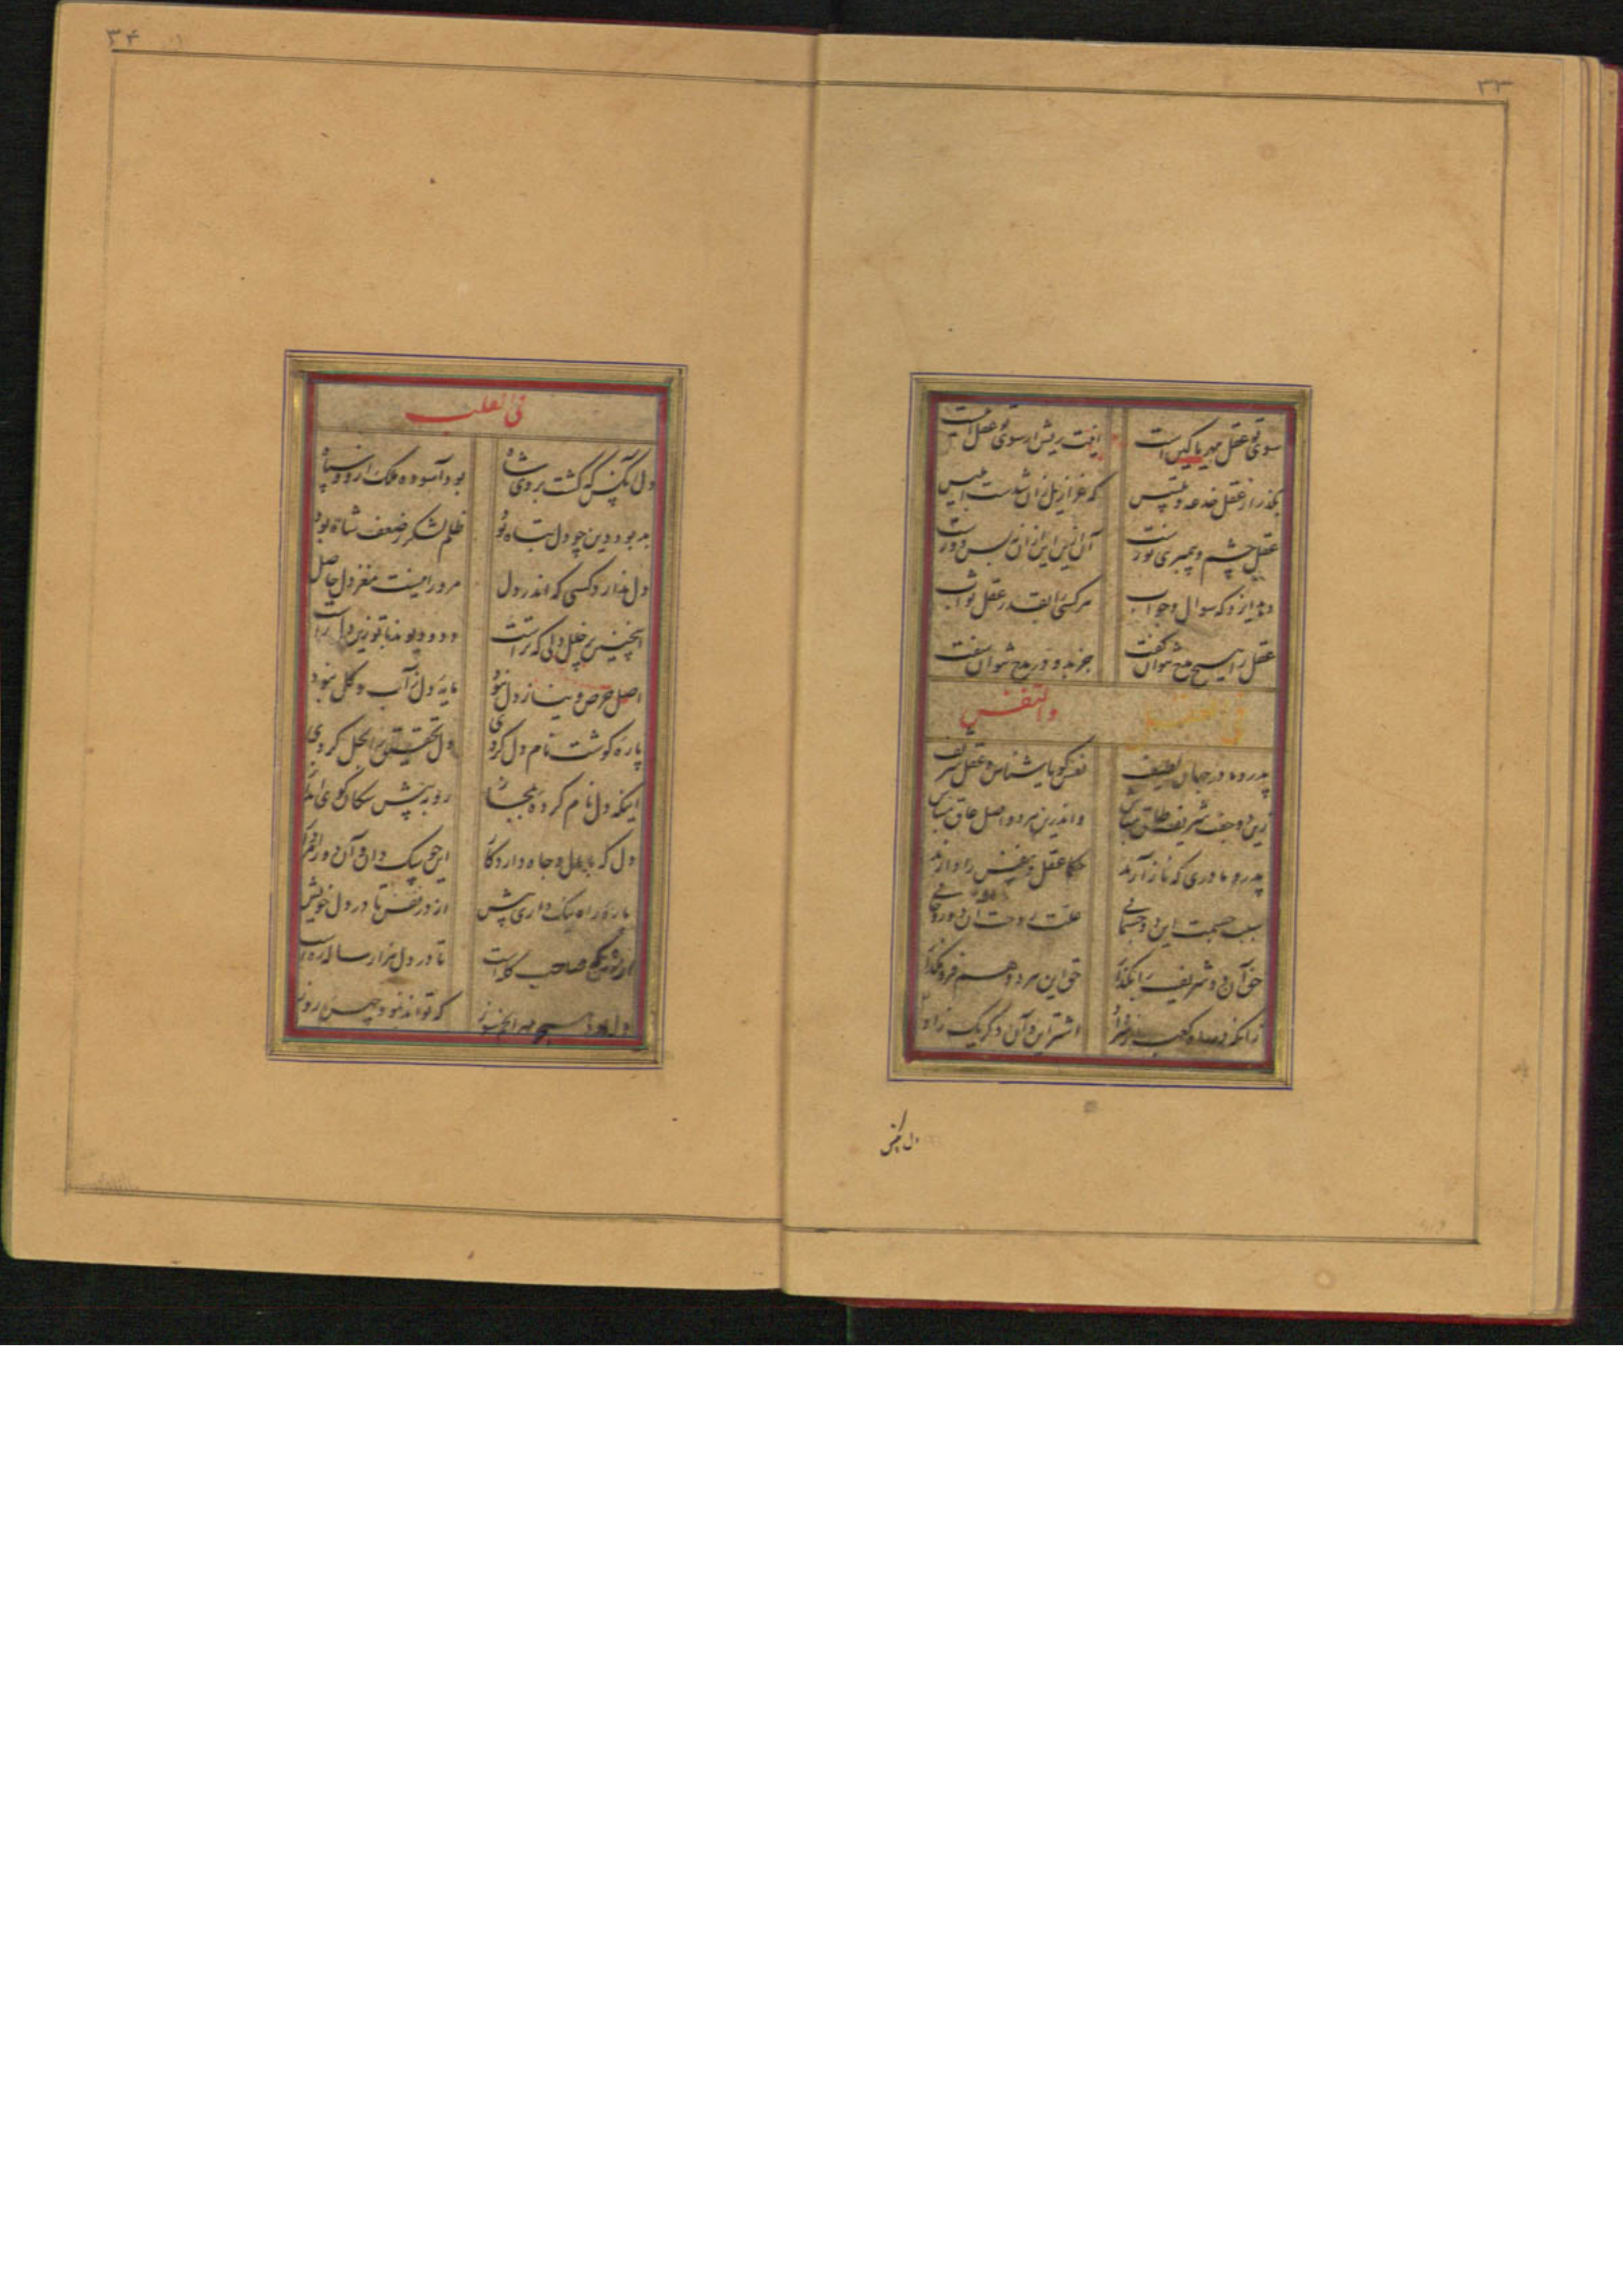 ۳۳
سوی تو عقل مهر یا کین است
آفت ریش از سوی تو عقل این است
بگذر از عقل خدعه و تلبیس
که عزازیل ازان شدست ابلیس
عقل چشم و پیمبری نورست
آن ازین این ازان بس دورست
سوال و جواب
هر کسی را بقدر عقل ثواب
عقل را هیچ مدح نتوان گفت
جز بدو در مدح نتوان سفت
فی العقل والنفس
پدر و مادر جهان لطیف
نفس گویا شناس و عقل شریف
زین دو جفت شریف طاق مباش
واندرین هر دو اصل عاق مباش
پدر و مادری که ناز آرند
عقل و نفس را دارند
سبب جسمت این دو جسمانی
علت روحت آن دو روحانی
حق آن دو شریف را بگذار
حق این هر دو هم فرو مگذار
زانکه
این و آن دگر یک زاد
دل آنکس
۳۴
فی القلب
دل آنکس که گشت بر وی شاه
بود آسوده ملک ازو و سپاه
بد بود دین چو دل تباه بود
ظلم لشکر ز ضعف شاه بود
دل ندارد کسی که اندر دل
مر ورا نیست مغز دل حاصل
اینچنین پر خلل دلی که تراست
دد و دیوند با تو زین دل راست
اصل حرص و نیاز دل نبود
مایه دل ز آب و گل نبود
پاره گوشت نام دل کردی
دل تحقیق را بحل کردی
اینکه دل نام کرده بمجاز
رو به پیش سگان کوی انداز
دل که با مال و جاه دارد کار
این چو سگ دان و آن دو را مردار
پاره راه نیک داری پیش
از در نفس تا در دل خویش
صاحب کله است
تا در دل هزار ساله ره است